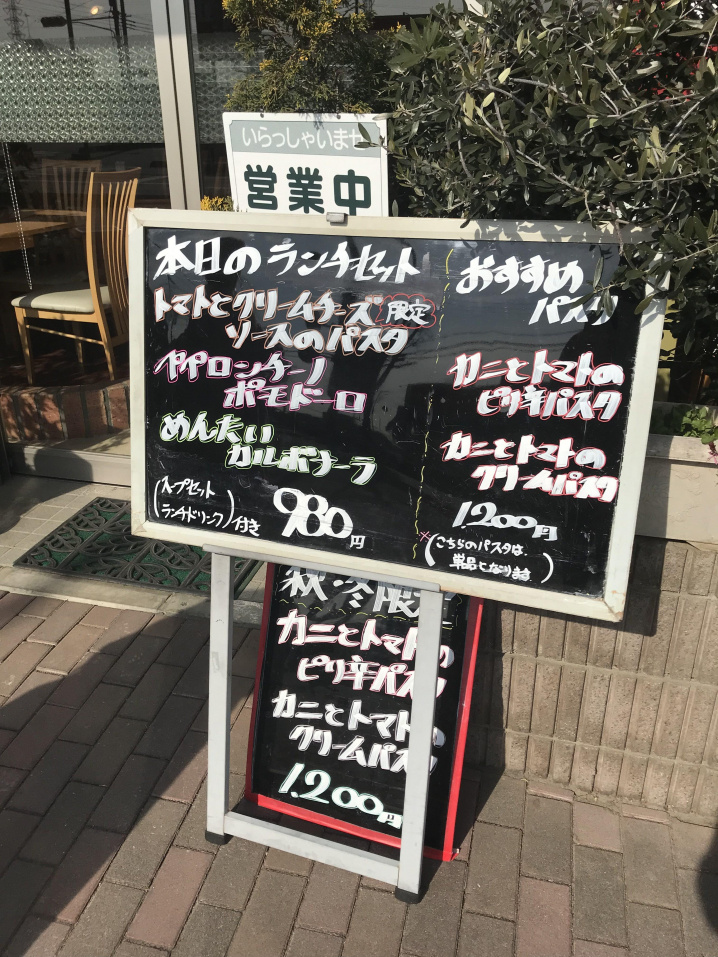 いらっしゃいませ
営業中
本日のランチセット
トマトとクリームチーズ 限定
ソースのパスタ
ペペロンチーノ
ポモドーロ
めんたい
カルボナーラ
(スープセット
ランチドリンク)付き 980円
おすすめ
パスタ
カニとトマトの
ピリ辛パスタ
カニとトマトの
クリームパスタ
1.200円
※(こちらのパスタは、
単品となります)
秋冬限定
カニとトマトの
ピリ辛パスタ
カニとトマトの
クリームパスタ
1.200円